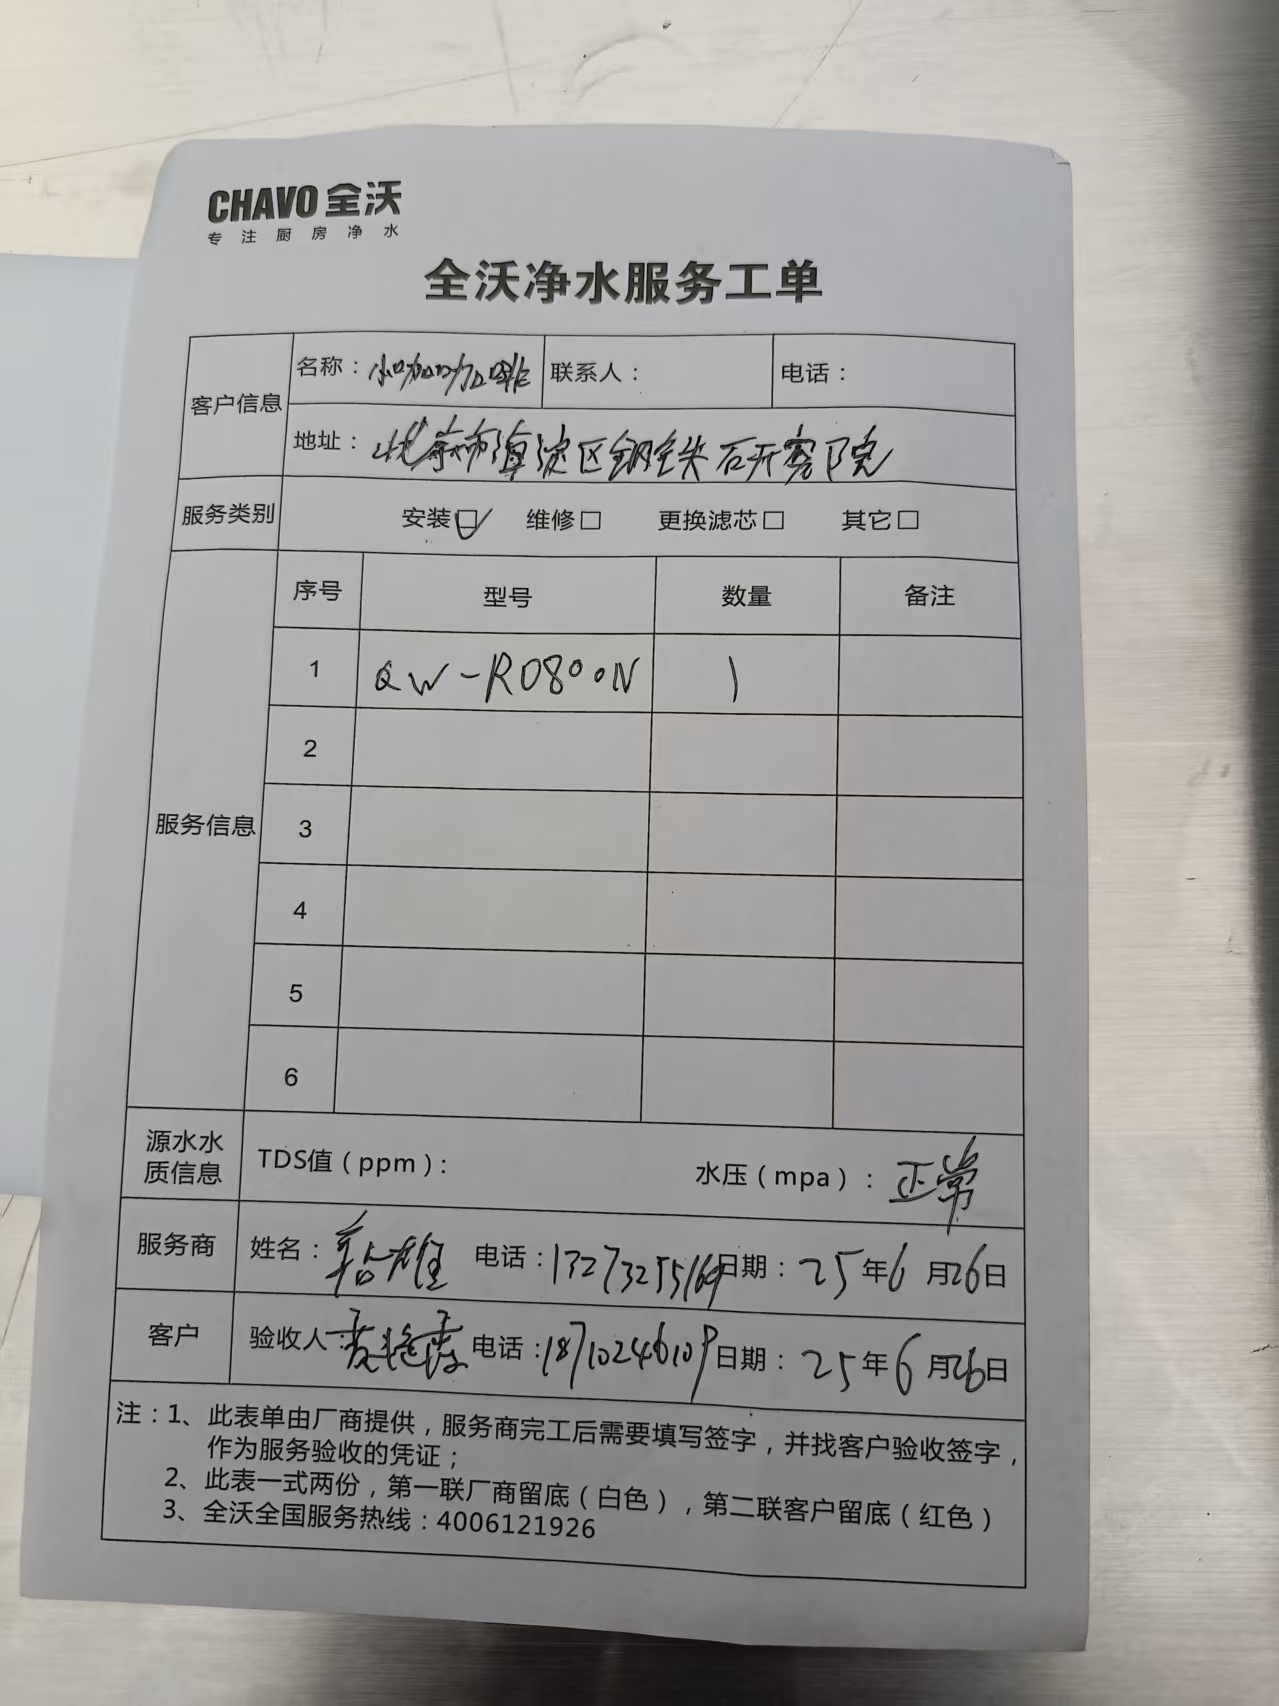 CHAVO 全沃
专注厨房净水
全沃净水服务工单
客户信息 名称： 联系人： 电话：
地址：北京市海淀区钢铁研究院
服务类别 安装☑ 维修□ 更换滤芯□ 其它□
服务信息 序号 型号 数量 备注
1 QW-RO800N 1
2
3
4
5
6
源水水质信息 TDS值（ppm）： 水压（mpa）：正常
服务商 姓名： 电话：13273255169 日期：25年6月26日
客户 验收人： 电话：18710246109 日期：25年6月26日
注：1、此表单由厂商提供，服务商完工后需要填写签字，并找客户验收签字，
作为服务验收的凭证；
2、此表一式两份，第一联厂商留底（白色），第二联客户留底（红色）
3、全沃全国服务热线：4006121926